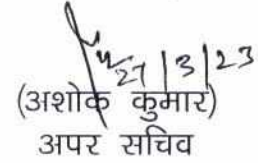 27/3/23
(अशोक कुमार)
अपर सचिव